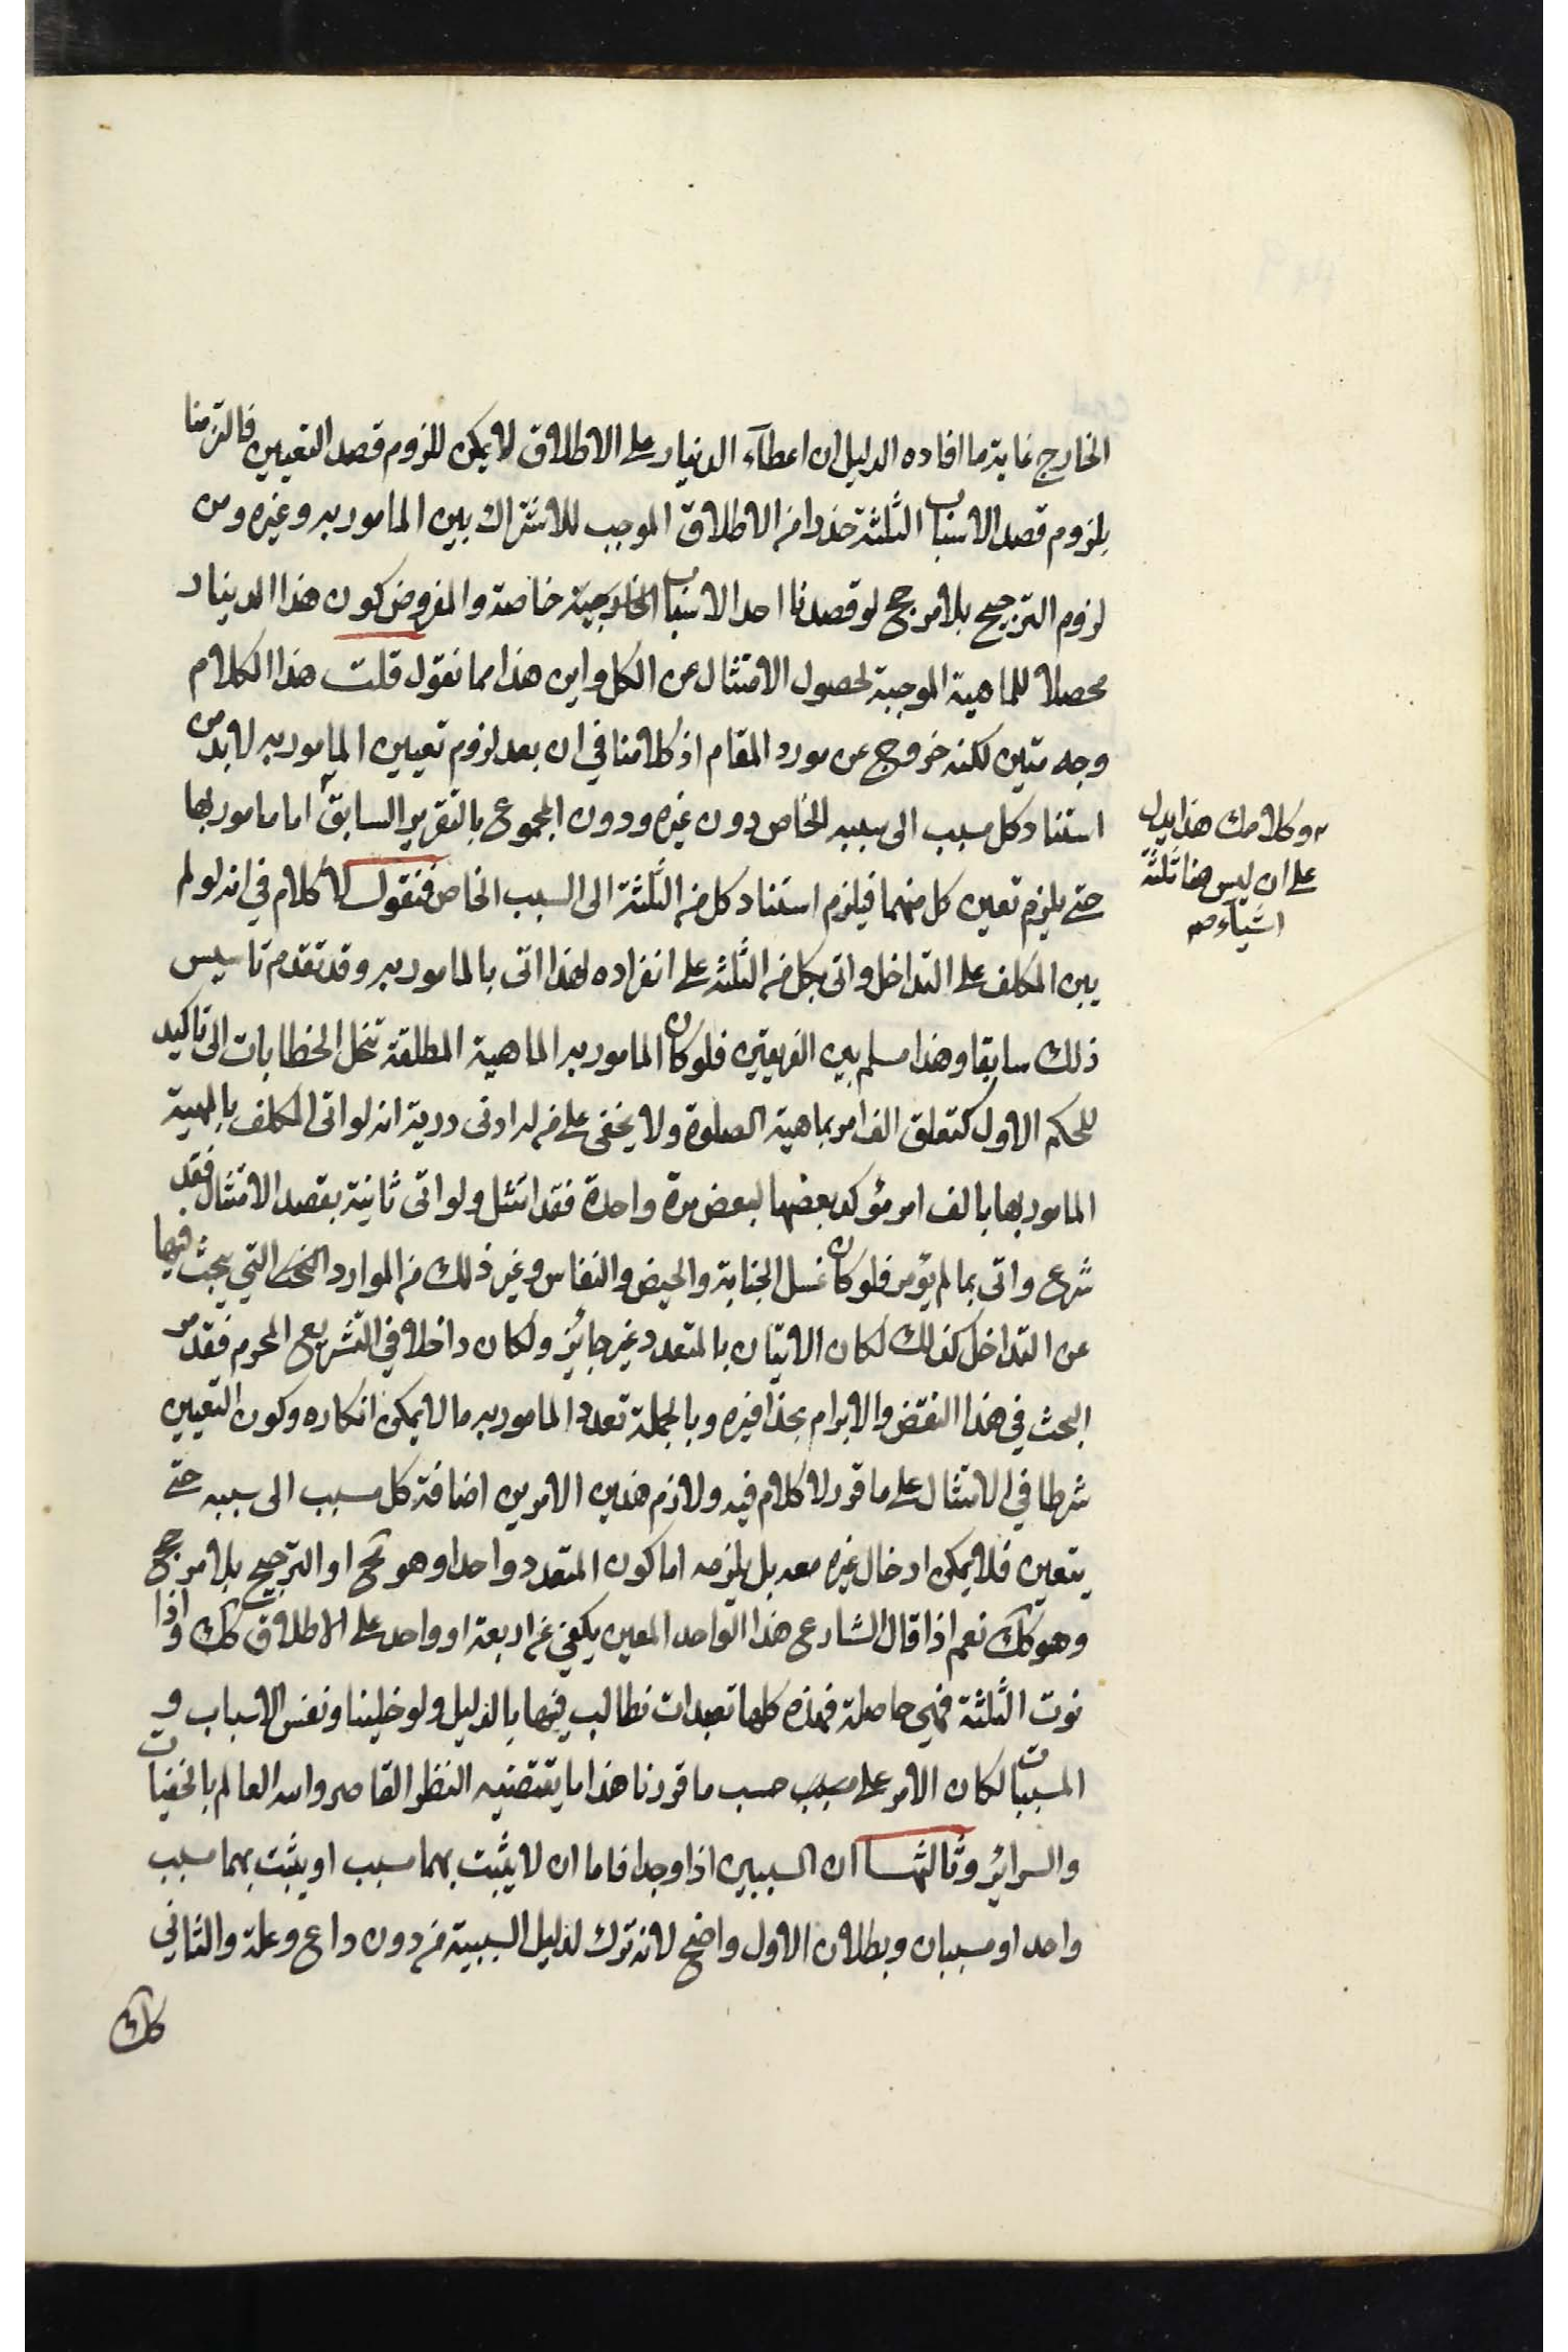 الخارج غاية ما افاده الدليل ان اعطآء الدينار على الاطلاق لا يمكن للزوم قصد التعيين فالتزمنا
بلزوم قصد الاسباب الثلثة حذرا من الاطلاق الموجب للاشتراك بين المامور به وغيره ومن
لزوم الترجيح بلا مرجح لو قصدنا احد الاسباب الخارجية خاصة والمفروض كون هذا الدينار
محصلا للماهية الموجبة لحصول الامتثال عن الكل واين هذا مما نقول قلت هذا الكلام
وجه متين لكنه خروج عن مورد المقام اذ كلامنا في ان بعد لزوم تعيين المامور به لا بد من
استناد كل مسبب الى سببه الخاص دون غيره ودون المجموع بالتقرير السابق اما مامور بها
حتى يلزم تعين كل منهما فيلزم استناد كل من الثلثة الى السبب الخاص فنقول لا كلام في انه لو لم
يبن المكلف على التداخل واتى بكل من الثلثة على انفراده لهذا اتى بالمامور به وقد تقدم تاسيس
ذلك سابقا وهذا مسلم بين الفريقين فلو كان المامور به الماهية المطلقة تنحل الخطابات الى تاكيد
للحكم الاول كتعلق الف امر بماهية الصلوة ولا يخفى على من له ادنى درية انه لو اتى المكلف بالمهية
المامور بها بالف امر مؤكد بعضها لبعض مرة واحدة فقد امتثل ولو اتى ثانية بقصد الامتثال فقد
شرع واتى بما لم يؤمر فلو كان غسل الجنابة والحيض والنفاس وغير ذلك من الموارد التي يبحث فيها
عن التداخل كذلك لكان الاتيان بالمتعدد غير جايز ولكان داخلا في التشريع المحرم فقد مر
البحث في هذا النقض والابرام بحذافيره وبالجملة تعدد المامور به ما لا يمكن انكاره وكون التعيين
شرطا في الامتثال على ما قرر لا كلام فيه ولازم هذين الامرين اضافة كل مسبب الى سببه حتى
يتعين فلا يمكن ادخال غيره معه بل يلزمه اما كون المتعدد واحدا وهو مح او الترجيح بلا مرجح
وهو كك نعم اذا قال الشارع هذا الواحد المعين يكفي عن اربعة او واحد على الاطلاق كك واذا
نوت الثلثة فهي حاصلة فهذه كلها تعبدات نطالب فيها بالدليل ولو خلينا ونفس الاسباب و
المسببات لكان الامر على حسب ما قررنا هذا ما يقتضيه النظر القاصر والله العالم بالخفيات
والسرائر وثالثها ان السببين اذا وجدا فاما ان لا يثبت بهما مسبب او يثبت بهما مسبب
واحد او مسببان وبطلان الاول واضح لانه ترك لدليل السببية من دون داع وعلة والثاني
كك
وكلامك هذا يدل
على ان ليس هنا ثلثة
اشيآء صح